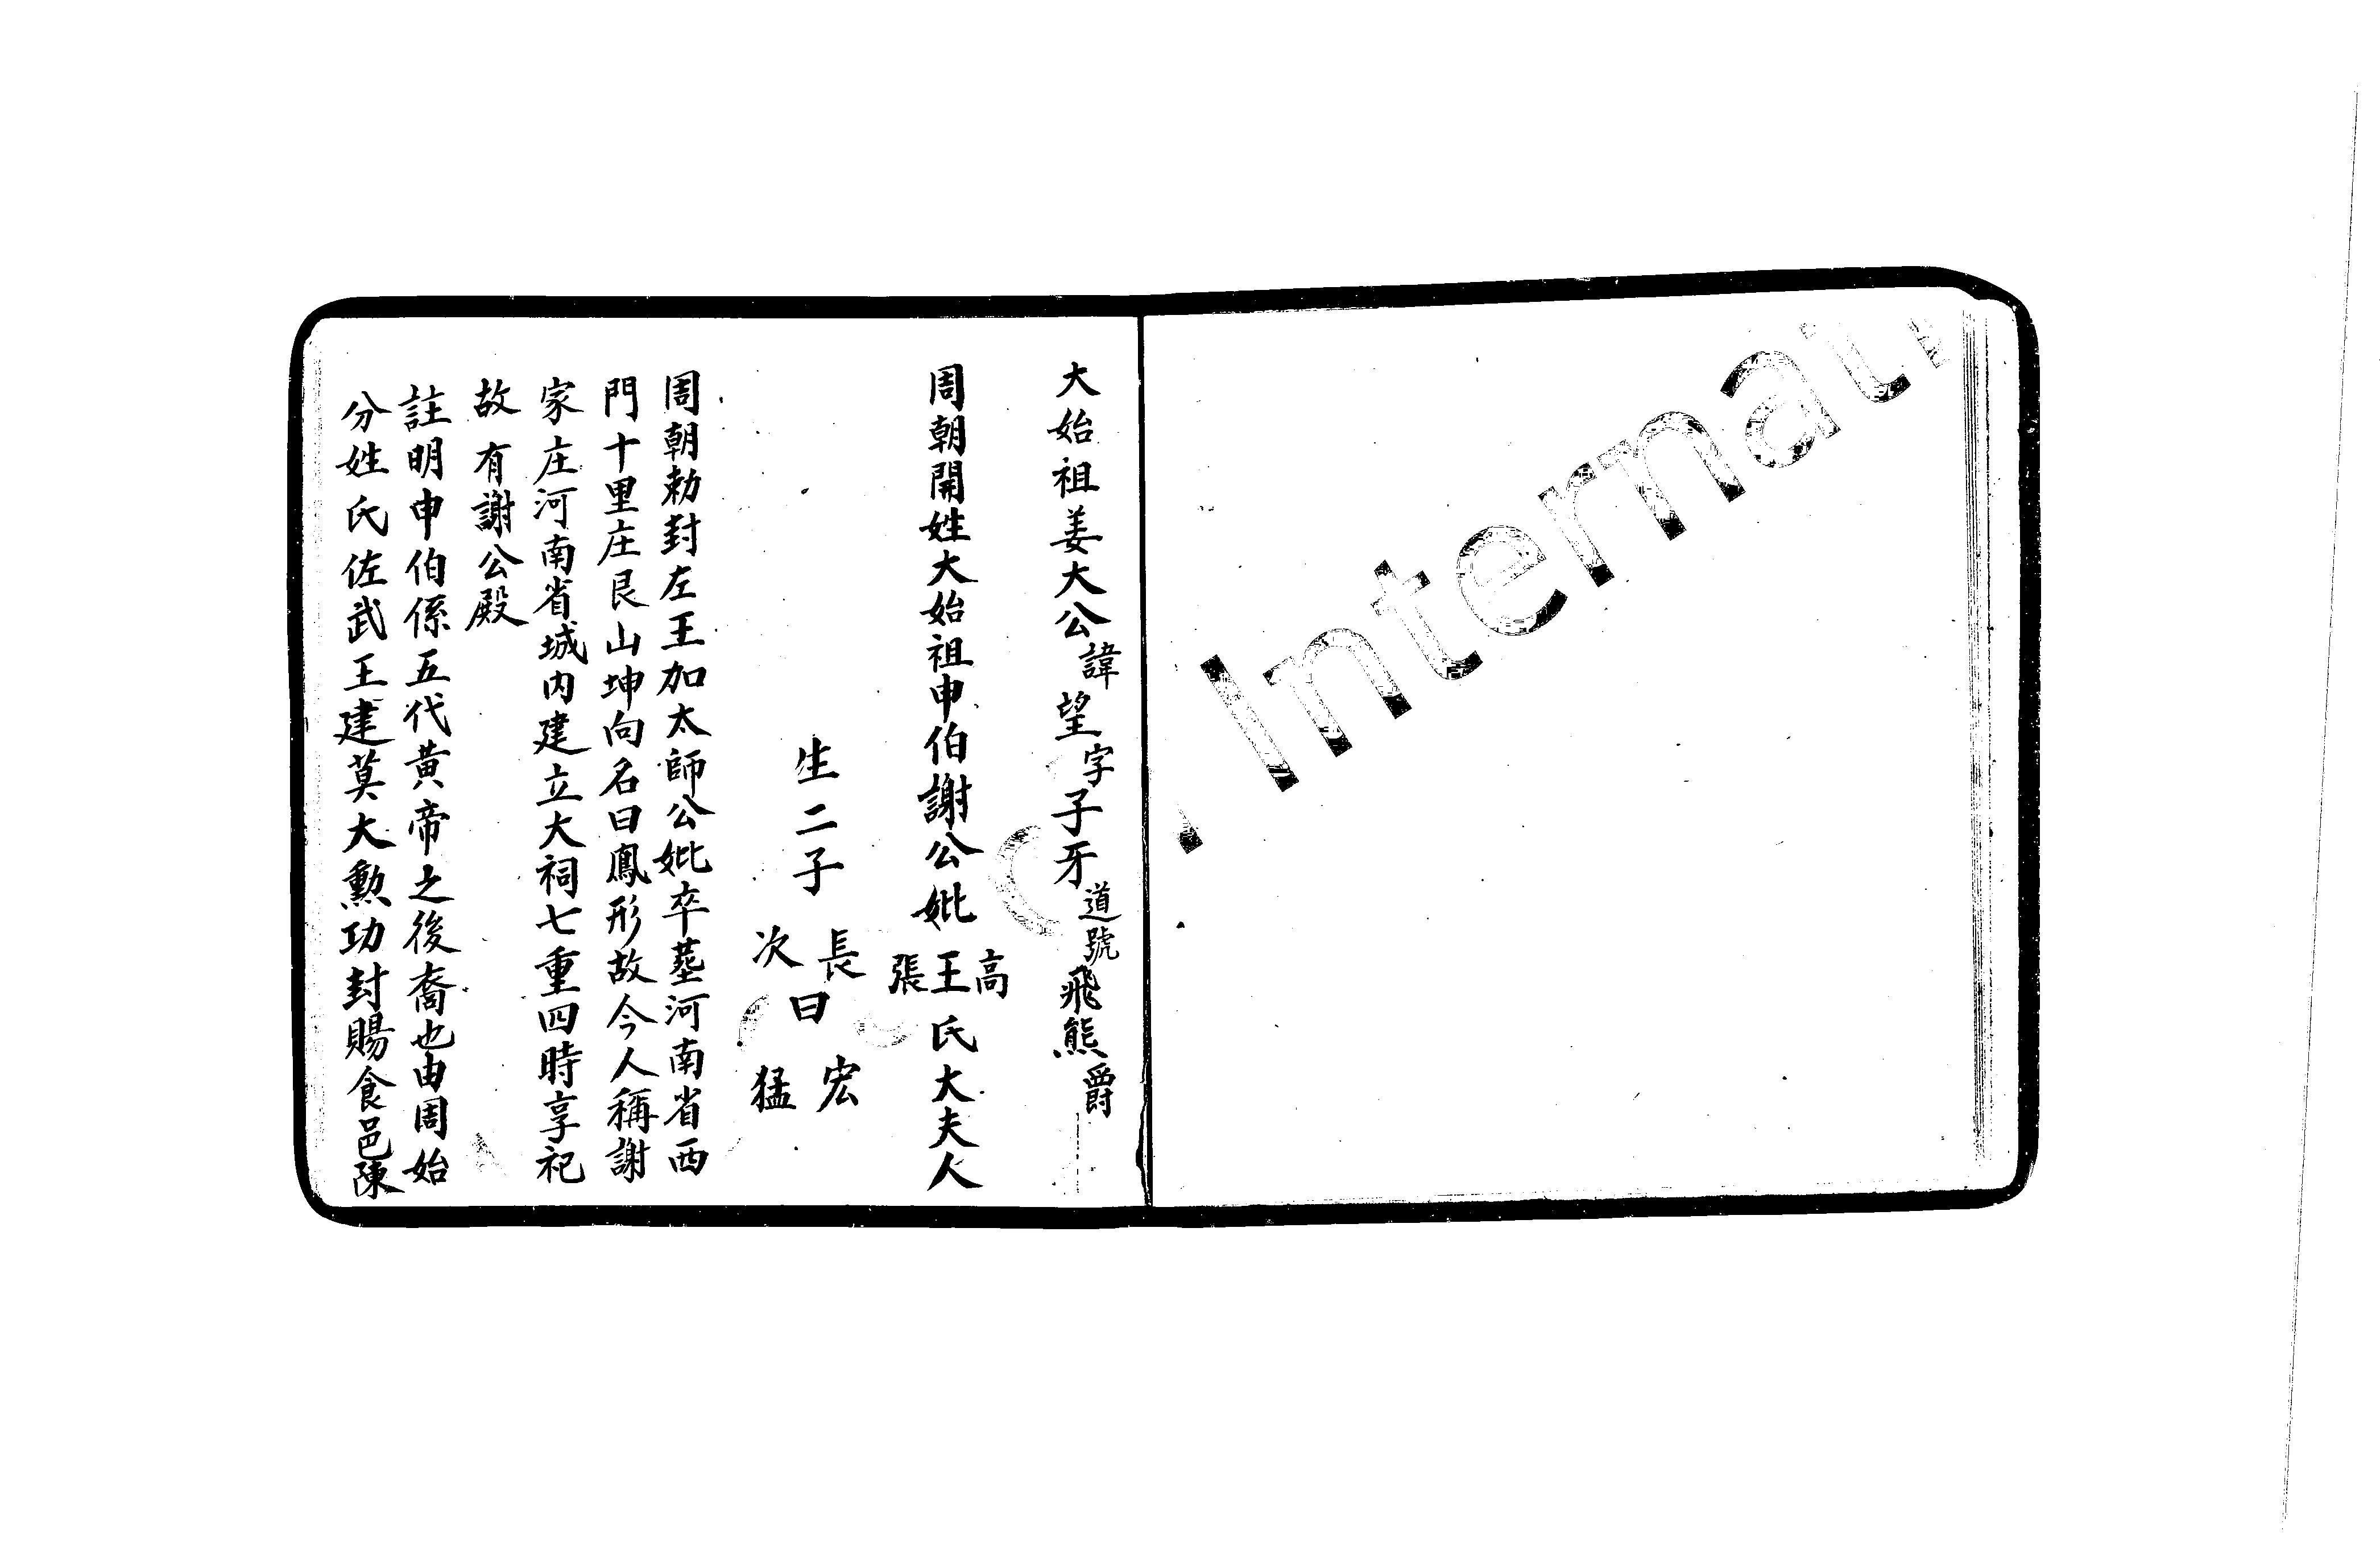 大始祖姜大公諱望字子牙道號飛熊爵
周朝開姓大始祖申伯謝公妣高王張氏大夫人
生二子長次曰宏猛
周朝勅封左王加太師公妣卒葬河南省西
門十里庄艮山坤向名曰鳳形故今人稱謝
家庄河南省城内建立大祠七重四時享祀
故有謝公殿
註明申伯係五代黃帝之後裔也由周始
分姓氏佐武王建莫大勲功封賜食邑陳
Internat